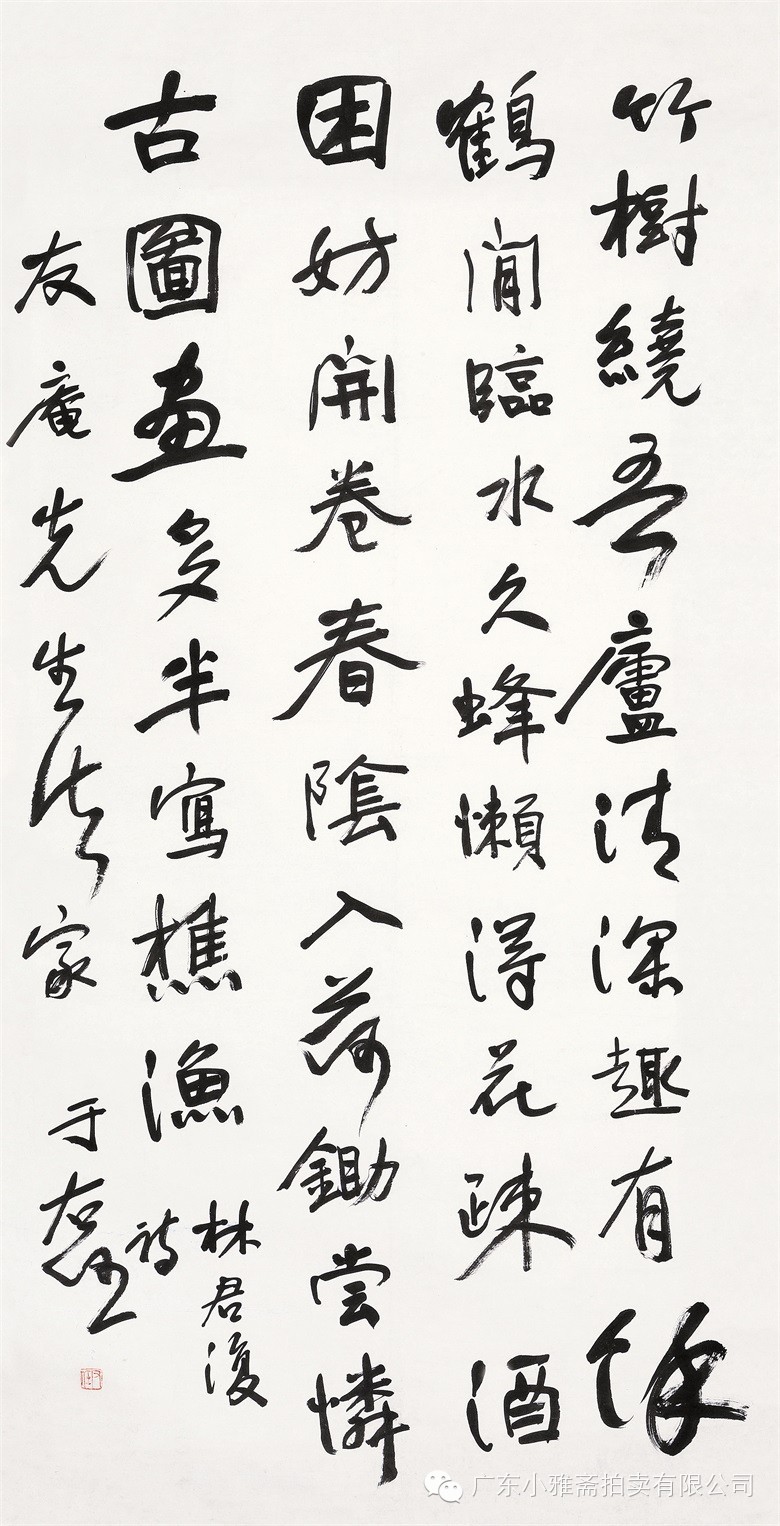 竹樹繞吾廬清深趣有餘
鶴閒臨水久蜂懶得花疎酒
困妨開卷春陰入荷鋤嘗憐
古圖畫多半寫樵漁
林君復
詩
友庵先生法家
于右任
广东小雅斋拍卖有限公司